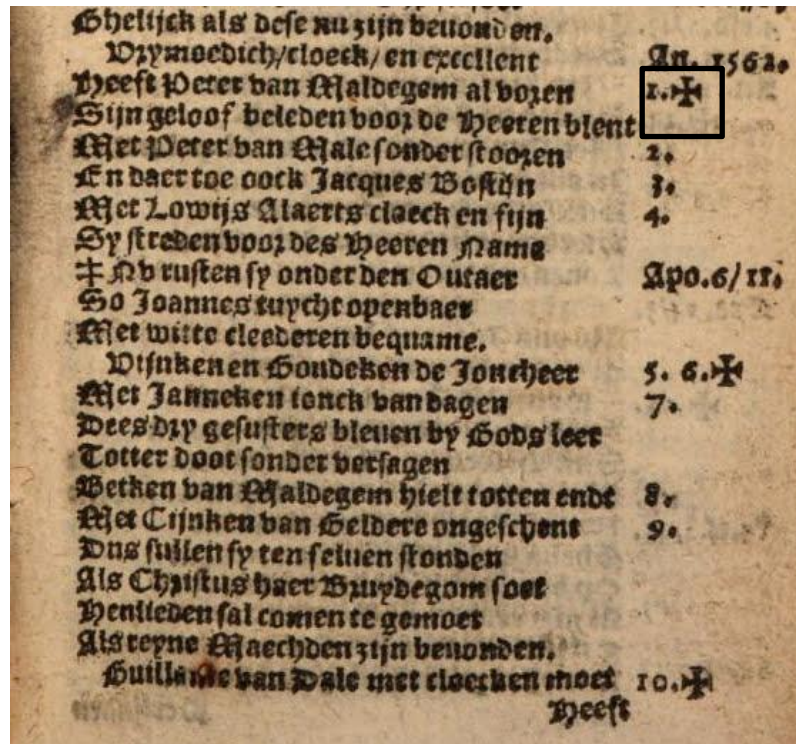 Ghelijck als dese nu zijn beuonden.
Vrymoedich/cloeck/en excellent An. 1562.
Heeft Peter van Maldegem al voren 1.✠
Sijn geloof beleden voor de Heeren blent
Met Peter van Male sonder stooren 2.
En daer toe oock Jacques Bostijn 3.
Met Lowijs Alaerts cloeck en fijn 4.
Sy streden voor des Heeren Name
‡ Nv rusten sy onder den Outaer Apo.6/11.
So Joannes tuycht openbaer
Met witte cleederen bequame.
Vijnken en Goudeken de Joncheer 5. 6.✠
Met Janneken jonck van dagen 7.
Dees dry gesusters bleuen by Gods leer
Totter doot sonder versagen
Betken van Maldegem hielt totten ende 8.
Met Cijnken van Geldere ongeschent 9.
Dus sullen sy ten seluen stonden
Als Christus haer Bruydegom soet
Henlieden sal comen te gemoet
Als reyne Maechden zijn beuonden.
Guillame van Dale met cloecken moet 10.✠
Heeft